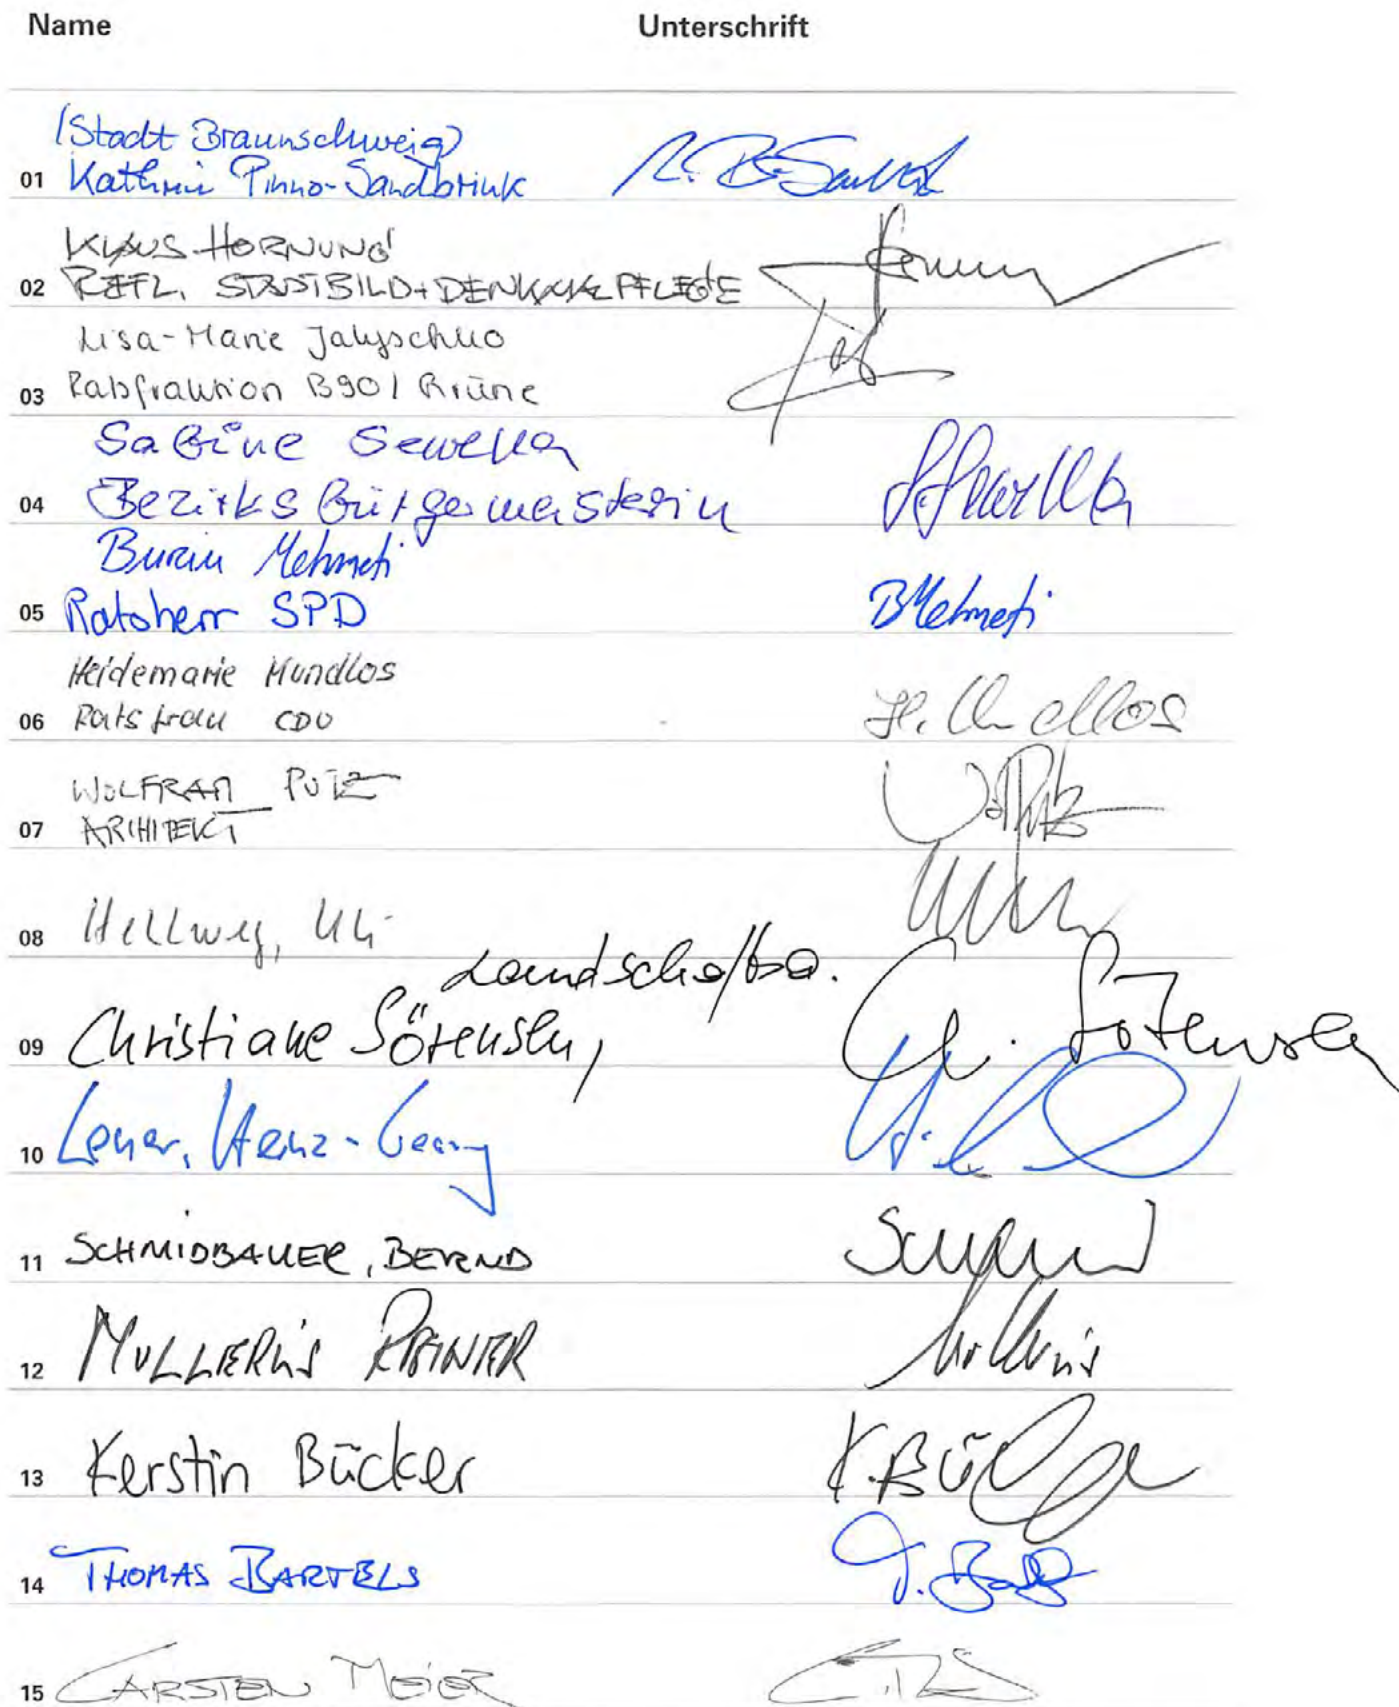 Name Unterschrift
(Stadt Braunschweig)
01 Kathrin Pinno-Sandbrink
KLAUS HORNUNG
02 REFL. STADTBILD+DENKMALPFLEGE
Lisa-Marie Jalyschko
03 Ratsfraktion B90/Grüne
Sabine Sewella
04 Bezirksbürgermeisterin
Burim Mehmeti
05 Ratsherr SPD BMehmeti
Heidemarie Mundlos
06 Ratsfrau CDU H. Mundlos
WOLFRAM PUTZ
07 ARCHITEKT
08 Hellweg, Uli
Landschafts
09 Christiane Sörensen, Ch. Sörensen
10 Heinz-Georg
11 SCHMIDBAUER, BERND
12
13 Kerstin Bücker K. Bücker
14 THOMAS BARTELS
15 CARSTEN MEIER